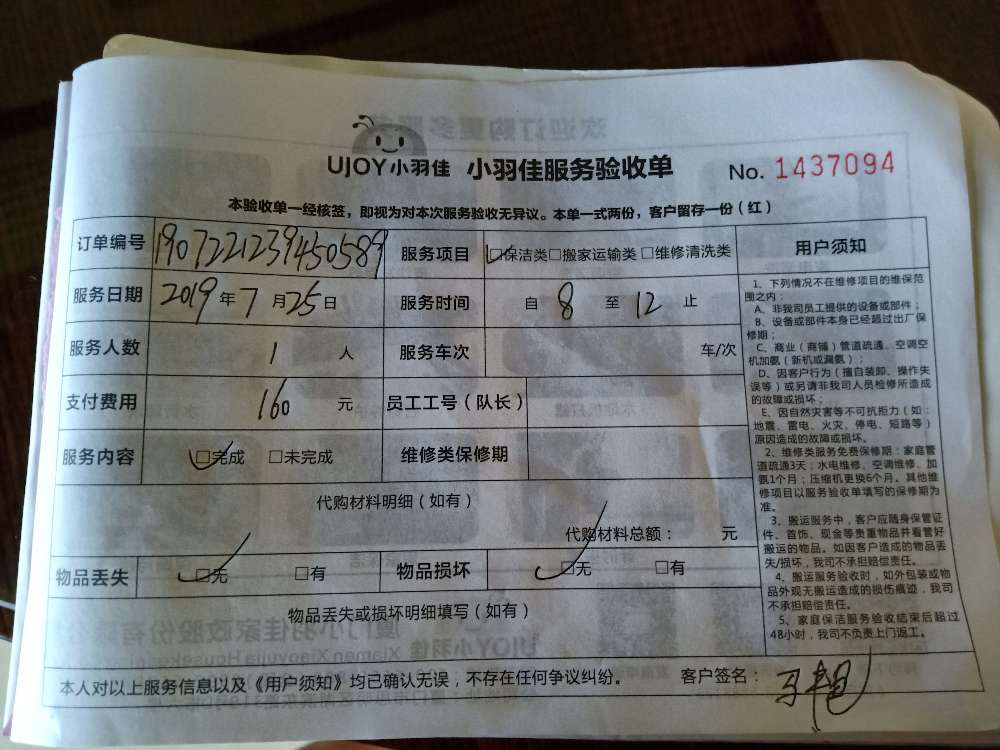 UJOY小羽佳 小羽佳服务验收单 No. 1437094
本验收单一经核签，即视为对本次服务验收无异议。本单一式两份，客户留存一份（红）
订单编号 1907221239450589 服务项目 □保洁类□搬家运输类 □维修清洗类
服务日期 2019年7月25日 服务时间 自 8 至 12 止
服务人数 1 人 服务车次 车/次
支付费用 160 元 员工工号（队长）
服务内容 □完成 □未完成 维修类保修期
代购材料明细（如有）
代购材料总额： 元
物品丢失 □无 □有 物品损坏 □无 □有
物品丢失或损坏明细填写（如有）
本人对以上服务信息以及《用户须知》均已确认无误，不存在任何争议纠纷。 客户签名：
用户须知
1、下列情况不在维修项目的维保范
围之内：
A、非我司员工提供的设备或部件；
B、设备或部件本身已经超过出厂保
修期；
C、商业（商铺）管道疏通、空调空
机加氨（新机或漏氨）；
D、因客户行为（擅自装卸、操作失
误等）或另请非我司人员检修所造成
的故障或损坏；
E、因自然灾害等不可抗拒力（如：
地震、雷电、火灾、停电、短路等）
原因造成的故障或损坏。
2、维修类服务免费保修期：家庭管
道疏通3天；水电维修、空调维修、加
氨1个月；压缩机更换6个月。其他维
修项目以服务验收单填写的保修期为
准。
3、搬运服务中，客户应随身保管证
件、首饰、现金等贵重物品并看管好
搬运的物品。如因客户造成的物品丢
失/损坏，我司不承担赔偿责任。
4、搬运服务验收时，如外包装或物
品外观无搬运造成的损伤痕迹，我司
不承担赔偿责任。
5、家庭保洁服务验收结束后超过
48小时，我司不负责上门返工。